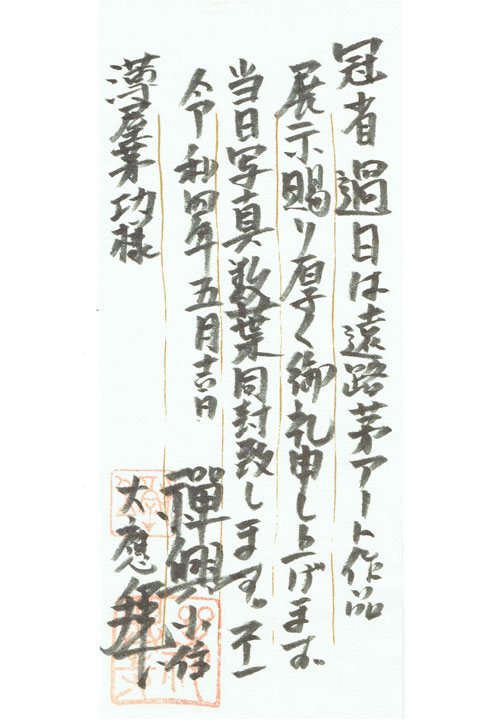 冠省 過日は遠路茅アート作品
展示賜り厚く御礼申し上げます。
当日写真数葉同封致します。不一
令和四年五月吉日
禅興小住
太應 拝
茅功様